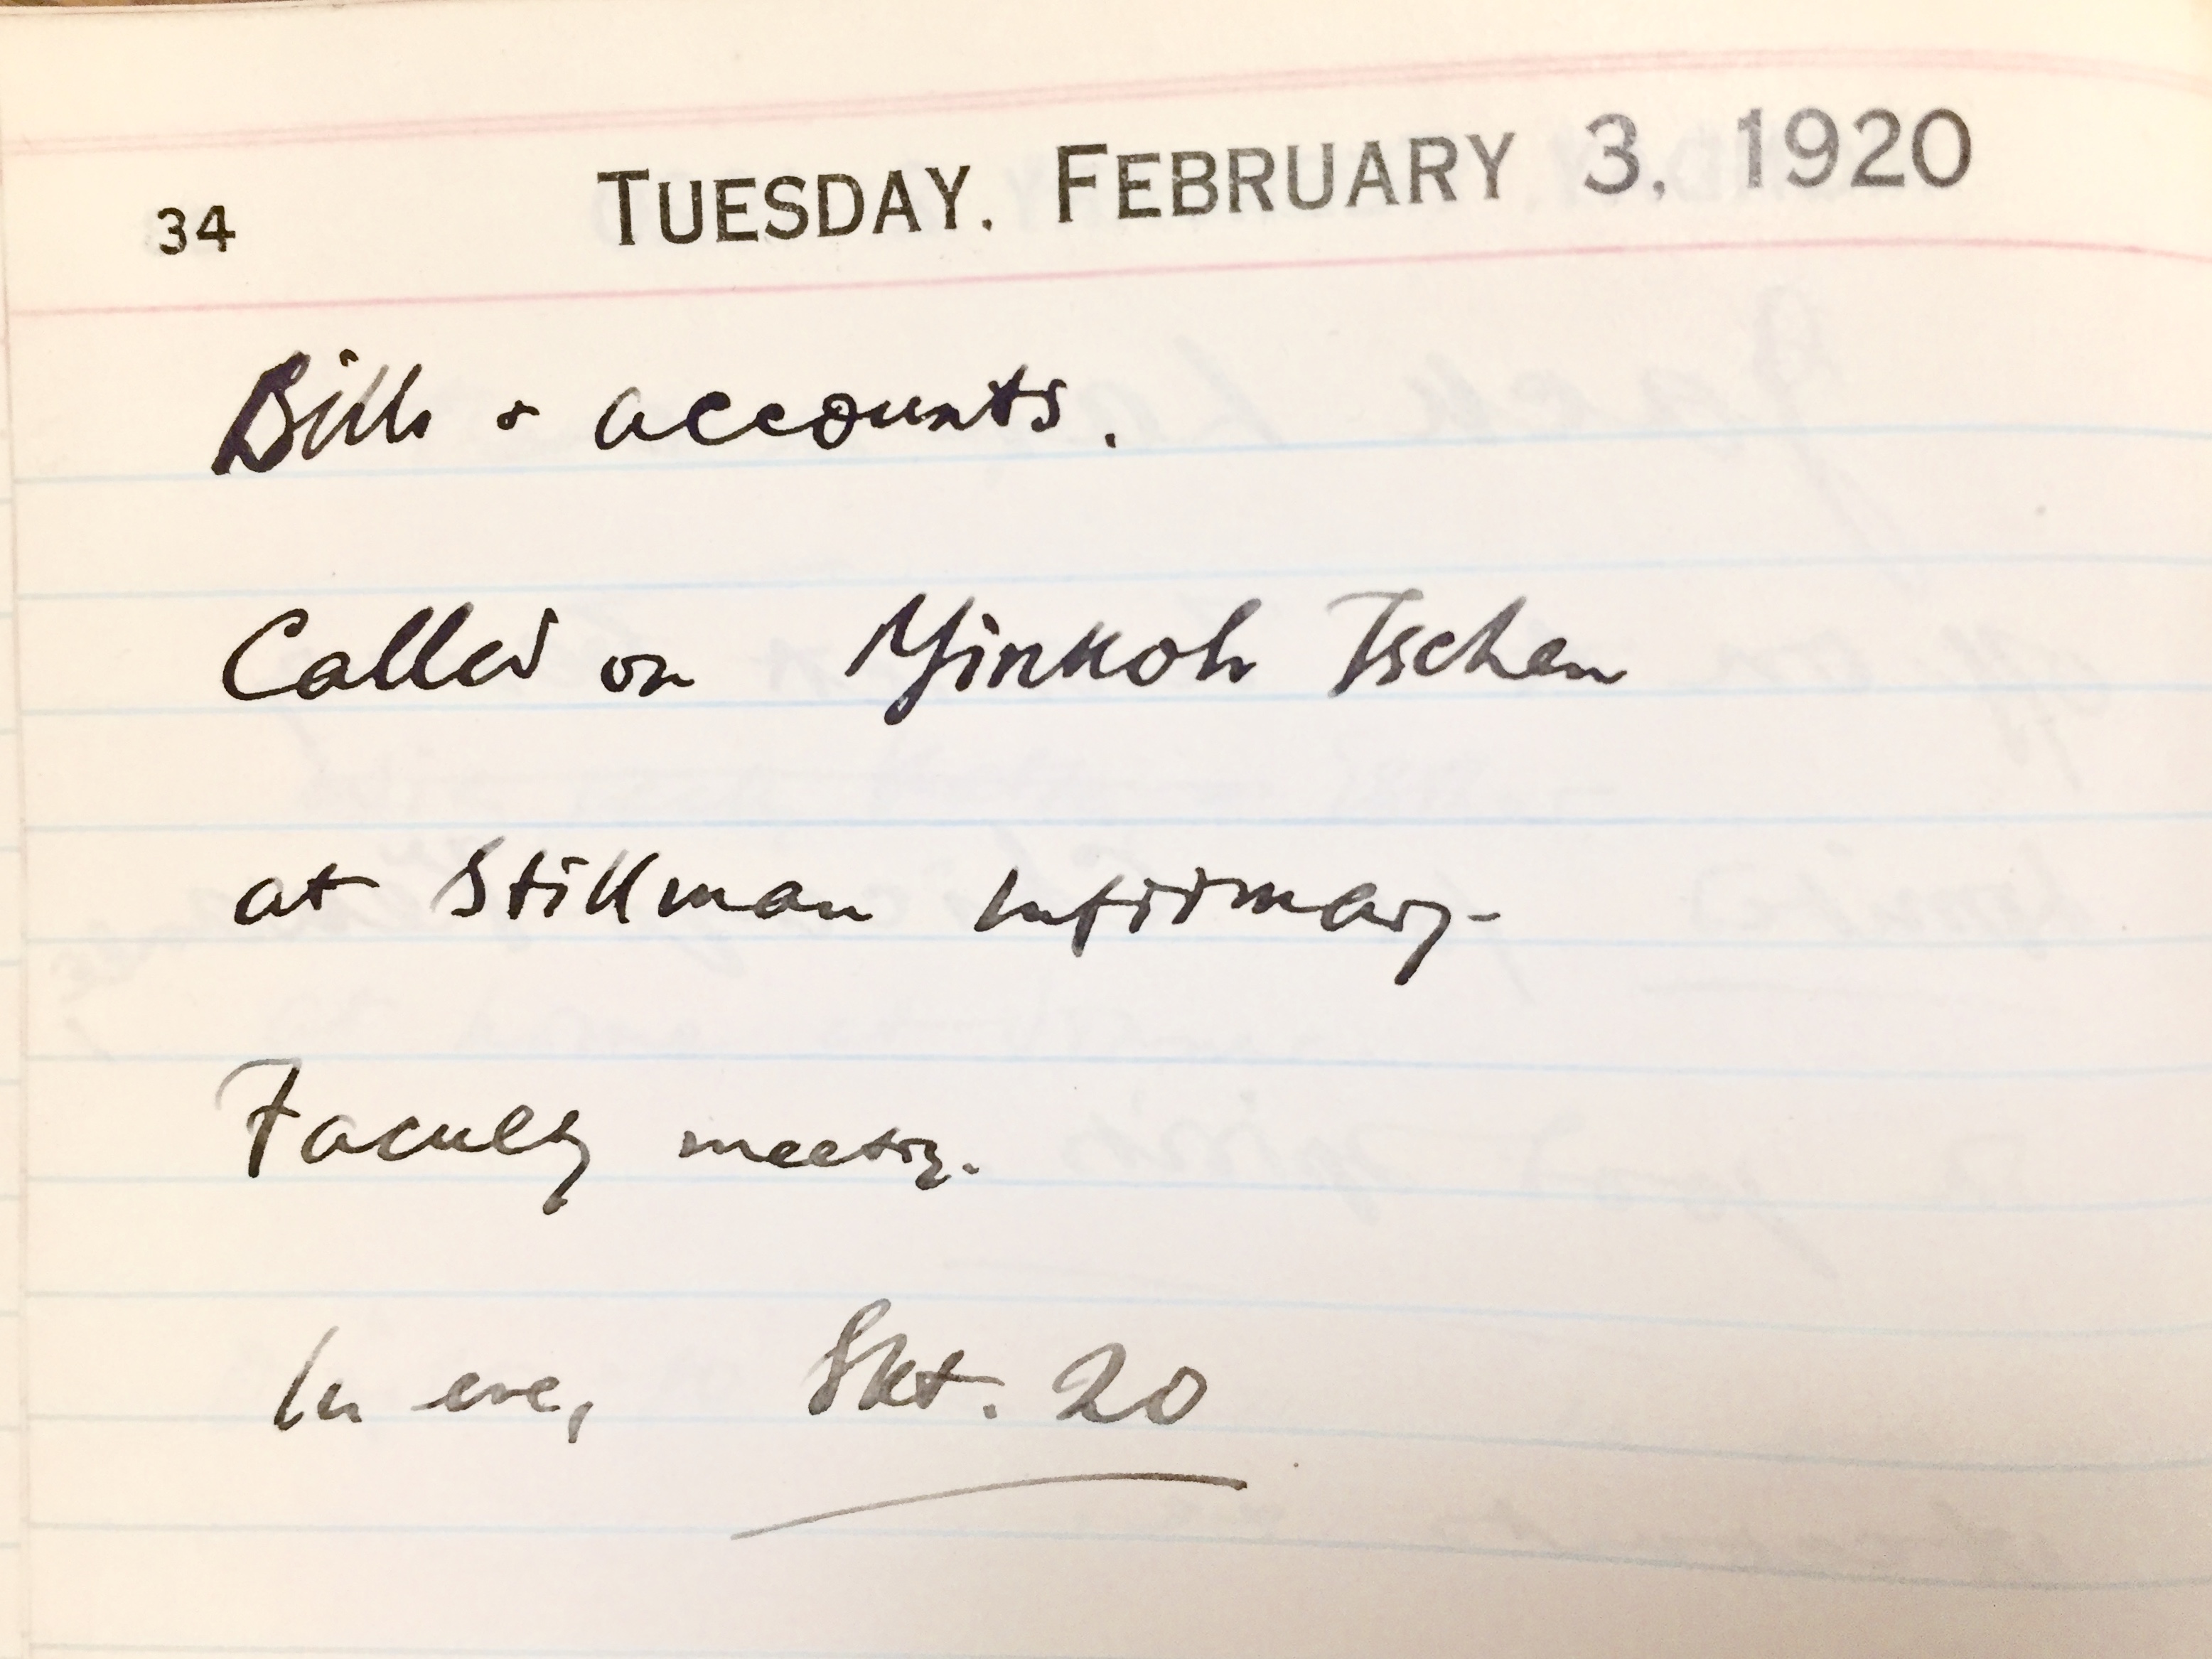 34 TUESDAY, FEBRUARY 3, 1920
Bills & accounts.
Called on Yinkoh Tschen
at Stillman Infirmary
Faculty meeting.
In eve, Skt. 20